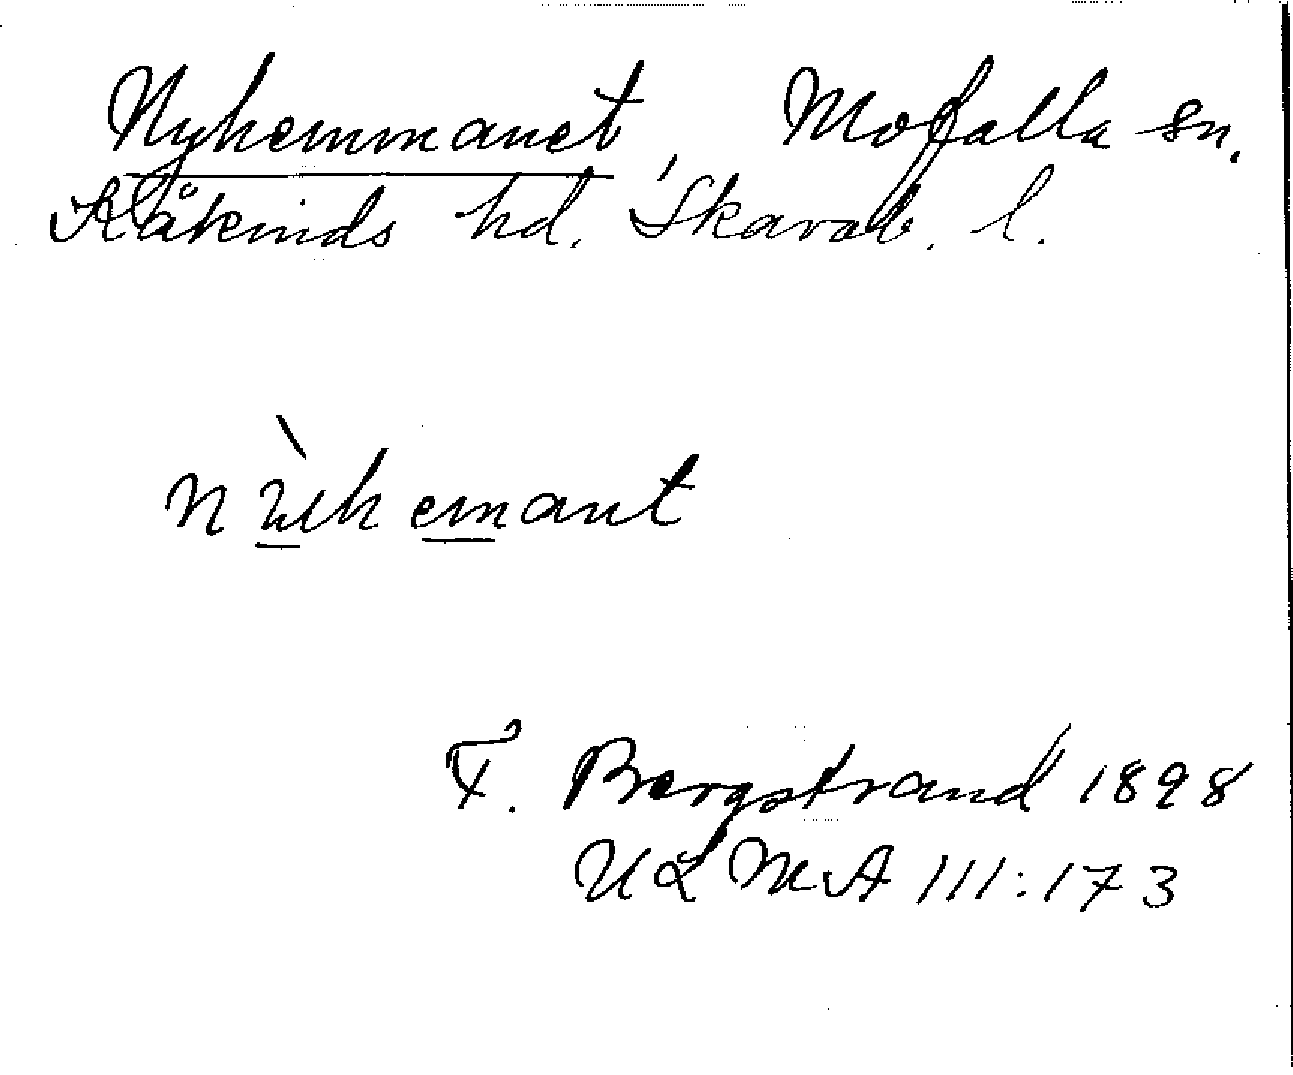 Nyhemmanet, Mofalla sn.
Kåkinds hd. Skarab. l.
nùhemant
F. Bergstrand 1898
ULMA 111:173